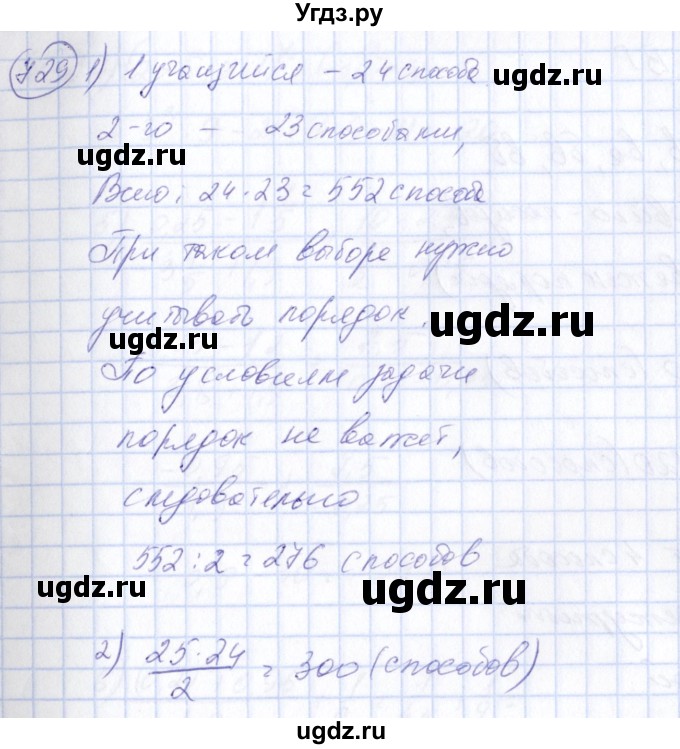 Угдз.ру
729 1) 1 учащийся – 24 способа
ugdz.ru
2-го – 23 способами,
ugdz.ru
Всего: 24·23=552 способа
При таком выборе нужно
учитывать порядок.
ugdz.ru
ugdz.ru
По условиям задачи
порядок не важет,
следовательно
552:2=276 способов
ugdz.ru
ugdz.ru
2) 25·24/2 = 300 (способов)
ugdz.ru
ugdz.ru